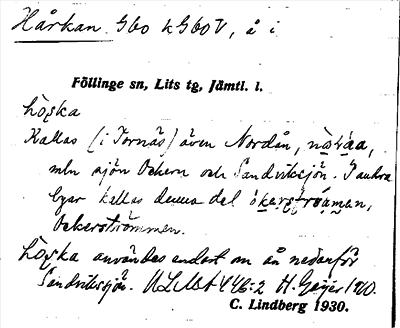 Hårkan Gbo k Gbo V, å i
Föllinge sn, Lits tg, Jämtl. l.
hòṣka
Kallas (i Tornäs) även Nordån,
mln sjön Ockern och Sandviksjön. I andra
byar kallas denna del
Ockerströmmen.
hòṣka användes endast om ån nedanför
Sandviksjön. ULMA 446:2 H. Geijer 1920.
C. Lindberg 1930.